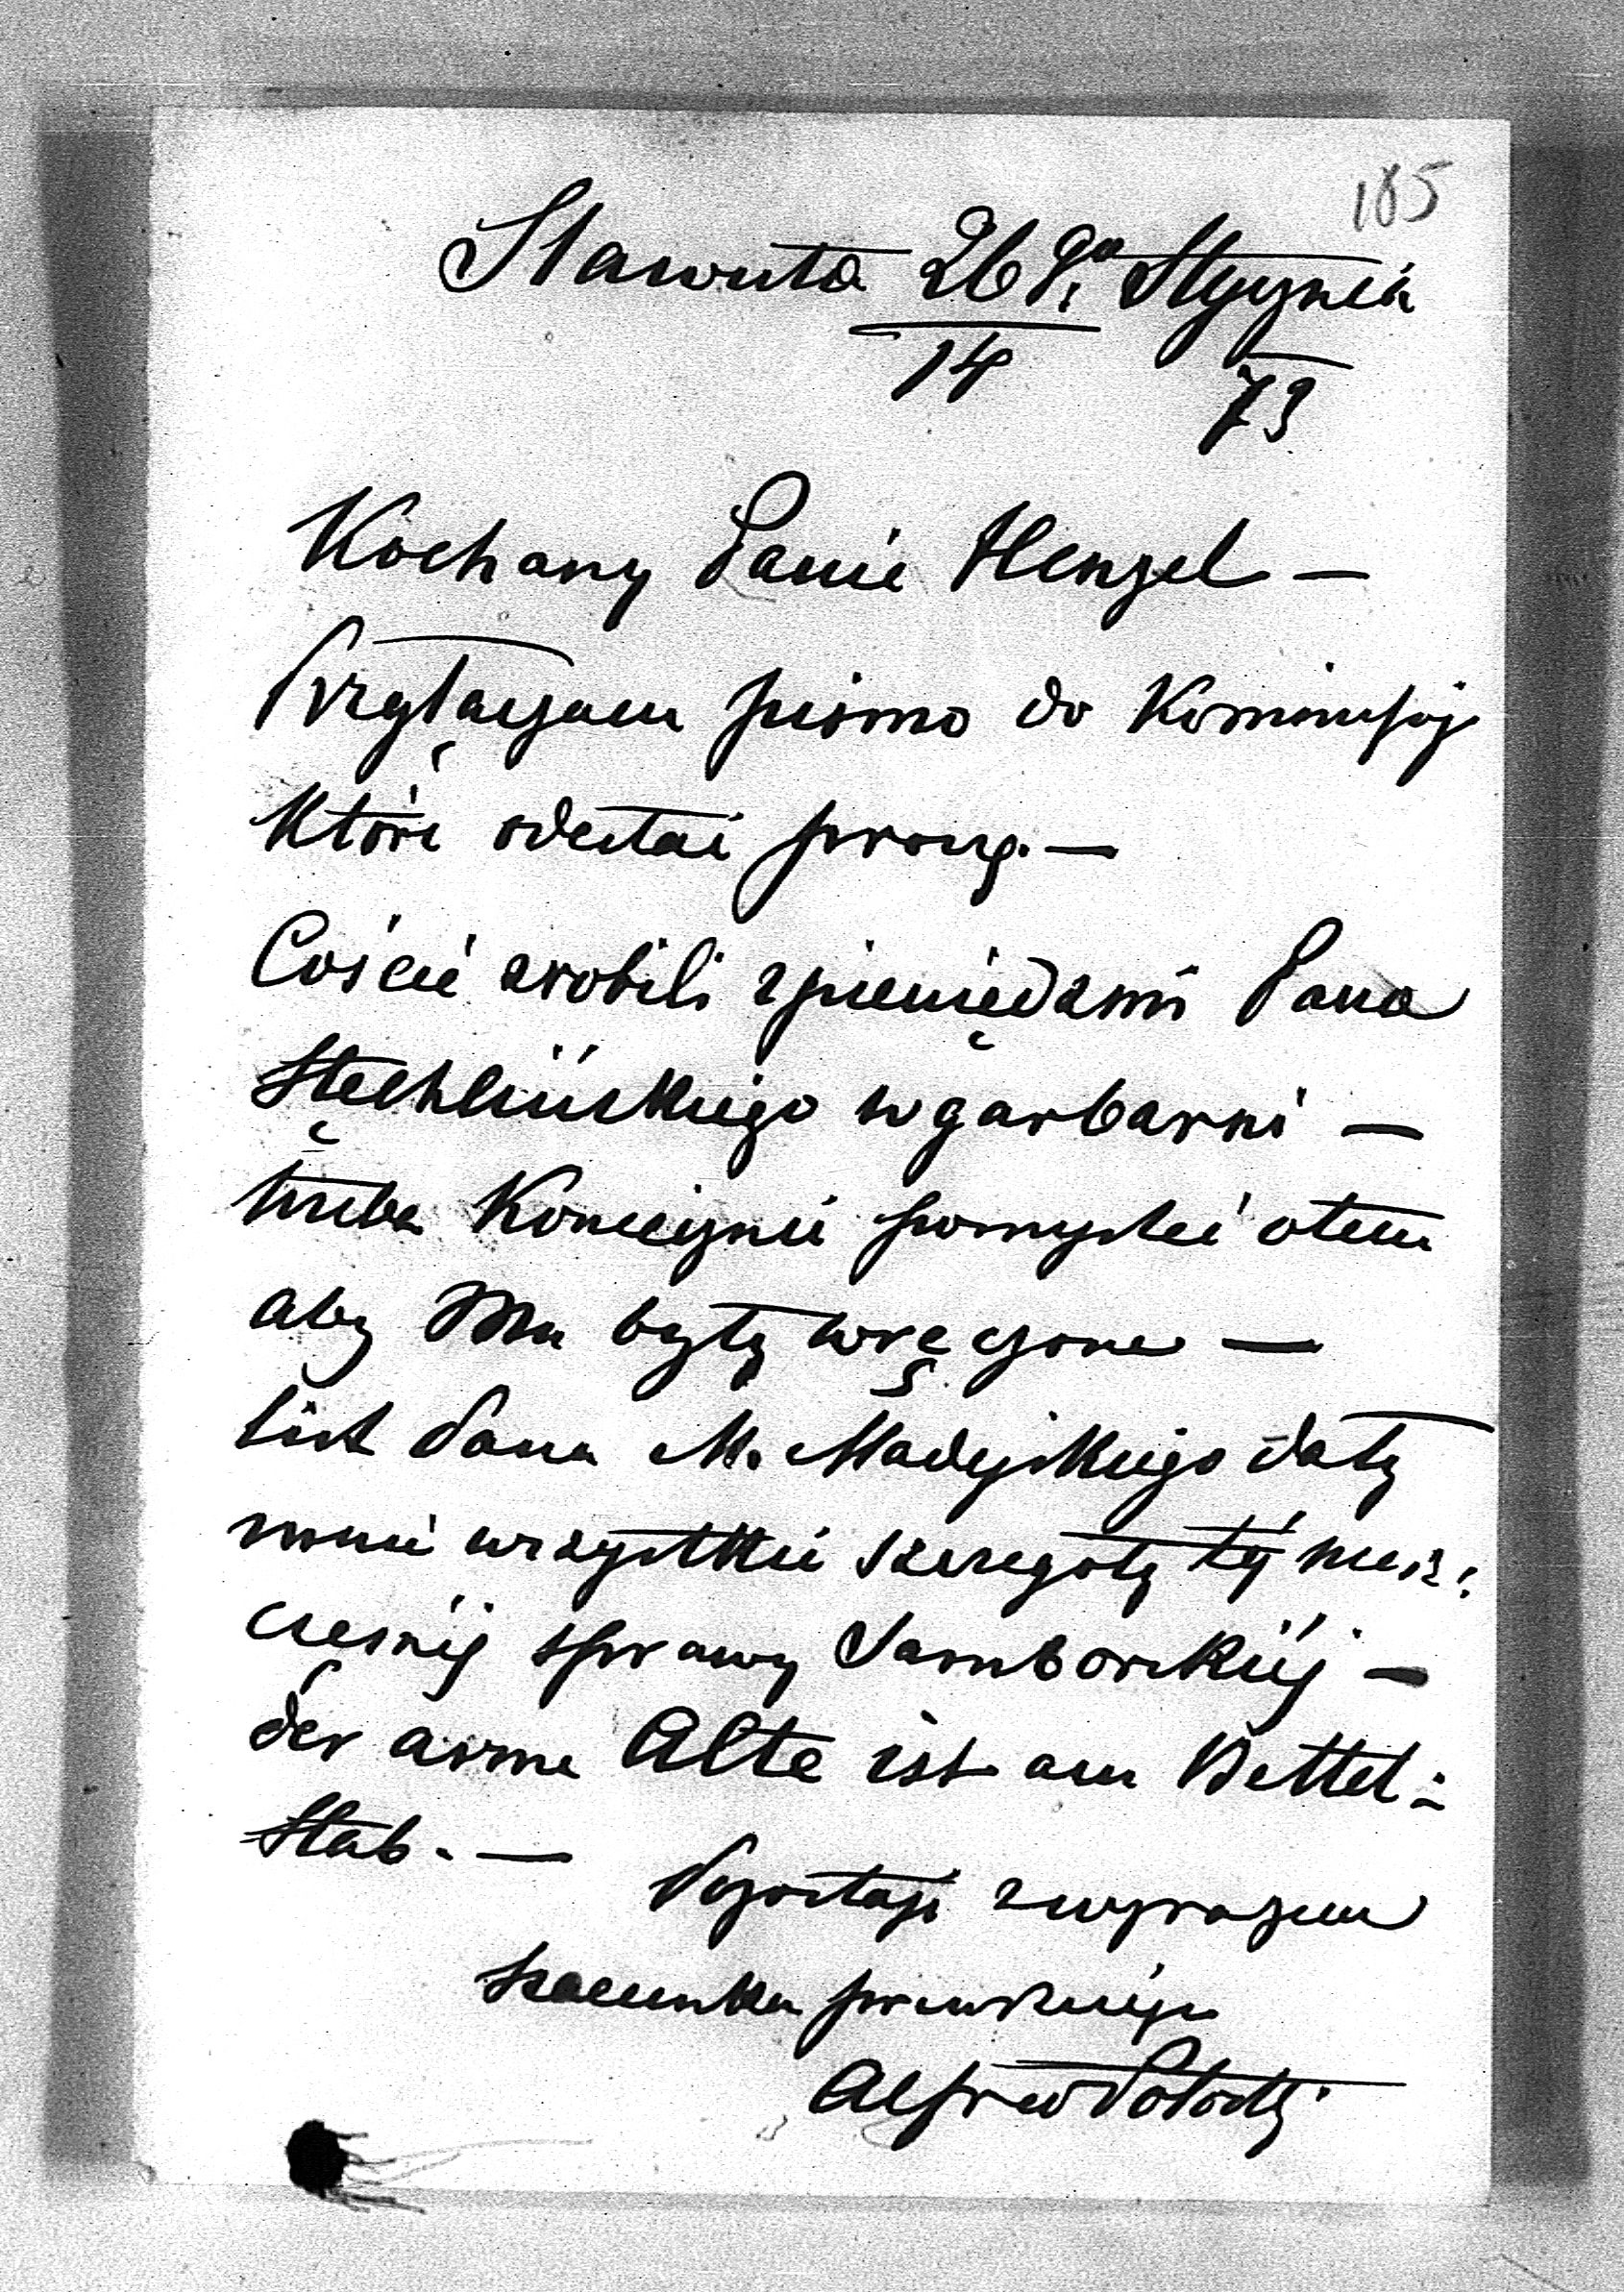 185
Sławuta 26go Stycznia
14 73
Kochany Panie Henzel —
Przyłączam pismo do Kommissji
które odesłać proszę. —
Coście zrobili z pieniędzmi Pana
Stęchlińskiego w garbarni —
trzeba koniecznie pomyśleć o tem
aby Mu były wręczone —
list Pana M. Madejskiego dały
mnie wszystkie szczegoły téj niesz:
częsnéj sprawy Samborskiéj —
der arme Alte ist am Bettel:
Stab. — Pozostaję z wyrazem
szacunku prawdziwego
Alfred Potocki